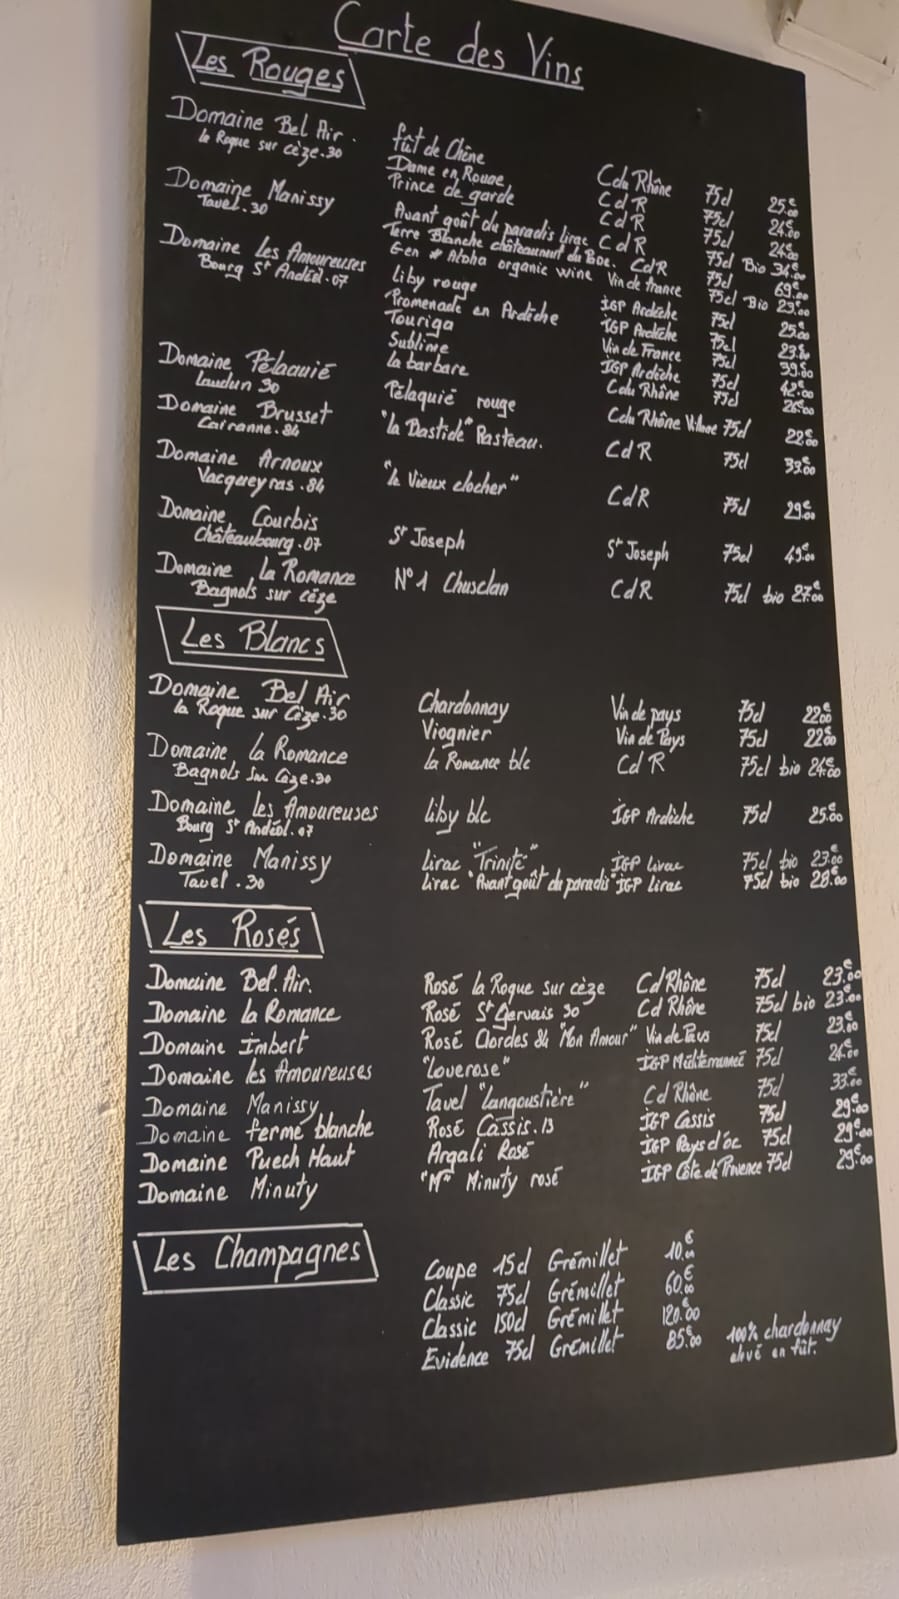 Carte des Vins
Les Rouges
Domaine Bel Air. fût de Chêne Cdu Rhône 75cl 25€00
la Roque sur cèze.30 Dame en Rouge CdR 75cl 24€00
Prince de garde CdR 75cl 24€00
Domaine Manissy Avant goût du paradis lirac CdR 75cl Bio 34€00
Tavel.30 Terre Blanche châteauneuf du Pape. CdR 75cl 69€00
Gen # Aloha organic wine Vin de france 75cl Bio 29€00
Domaine les Amoureuses liby rouge IGP Ardèche 75cl 25€00
Bourg St Andéol.07 Promenade en Ardèche IGP Ardèche 75cl 23€00
Touriga Vin de France 75cl 39€00
Sublime IGP Ardèche 75cl 42€00
la barbare Cdu Rhône 75cl 26€00
Domaine Pélaquié Pélaquié rouge Cdu Rhône Village 75cl 22€00
Laudun 30
Domaine Brusset "la Bastide" Rasteau. CdR 75cl 39€00
Cairanne.84
Domaine Arnoux "le Vieux clocher" CdR 75cl 29€00
Vacqueyras.84
Domaine Courbis St Joseph St Joseph 75cl 49€00
Châteaubourg.07
Domaine la Romance N°1 Chusclan CdR 75cl bio 27€00
Bagnols sur cèze
Les Blancs
Domaine Bel Air Chardonnay Vin de pays 75cl 22€00
la Roque sur Cèze.30 Viognier Vin de Pays 75cl 22€00
Domaine la Romance la Romance blc CdR 75cl bio 24€00
Bagnols sur Cèze.30
Domaine les Amoureuses liby blc IGP Ardèche 75cl 25€00
Bourg St Andéol.07
Domaine Manissy Lirac "Trinité" IGP Lirac 75cl bio 23€00
Tavel.30 Lirac "Avant goût du paradis" IGP Lirac 75cl bio 28€00
Les Rosés
Domaine Bel.Air. Rosé la Roque sur cèze Cd Rhône 75cl 23€00
Domaine la Romance Rosé St Gervais 30 Cd Rhône 75cl bio 23€00
Domaine Imbert Rosé Clordes 84 "Mon Amour" Vin de Pays 75cl 23€00
Domaine les Amoureuses "Loverose" IGP Méditerranné 75cl 24€00
Domaine Manissy Tavel "Langoustière" Cd Rhône 75cl 33€00
Domaine ferme blanche Rosé Cassis.13 IGP Cassis 75cl 29€00
Domaine Puech Haut Argali Rosé IGP Pays d'oc 75cl 29€00
Domaine Minuty "M" Minuty rosé IGP Côte de Provence 75cl 29€00
Les Champagnes
Coupe 15cl Grémillet 10€00
Classic 75cl Grémillet 60€00
Classic 150cl Grémillet 120€00
Evidence 75cl Grémillet 85€00 100% chardonnay
élevé en fût.